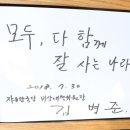 모두, 다 함께
잘 사는 나라
2018. 7. 30
자유한국당 비상대책위원장
김 병 준